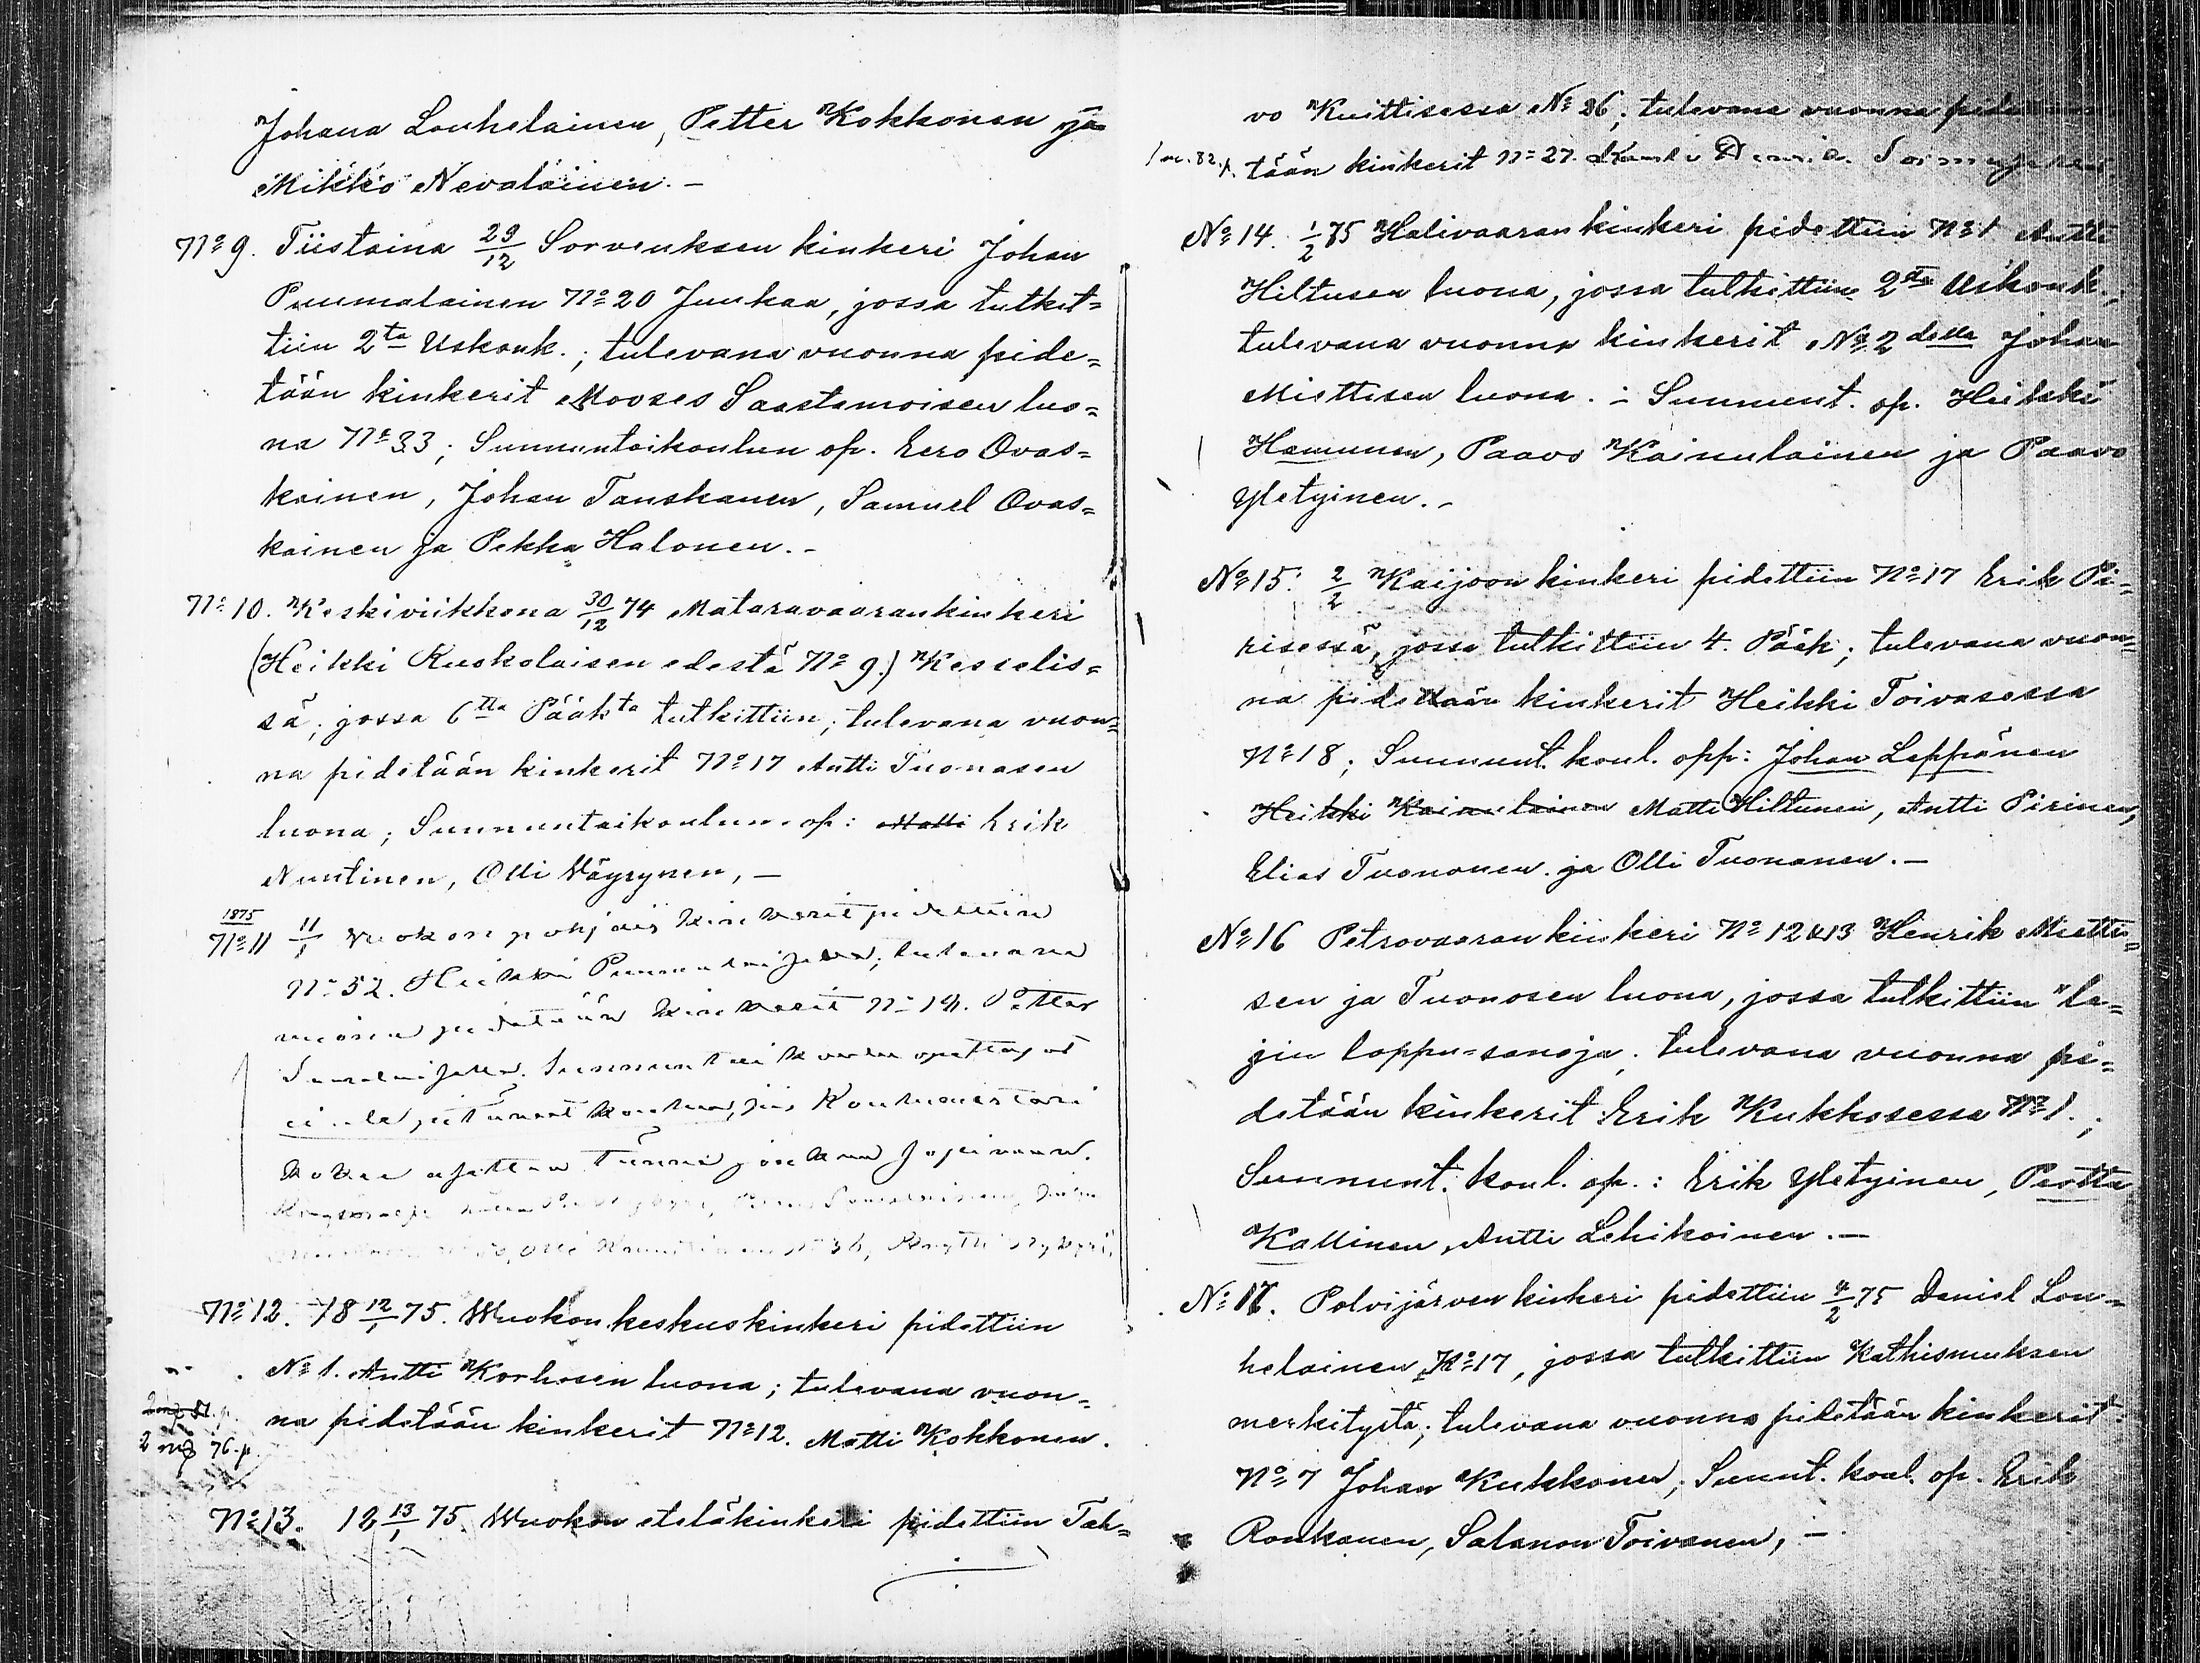 Johana Louhelainen, Petter Kokkonen ja
Mikko Nevalainen. –
No 9. Tiistaina 29/12 Sorvenksen kinkeri Johan
Puumalainen No 20 Juukaa, jossa tutkit=
tiin 2ta Uskonk.; tulevana vuonna pide=
tään kinkerit Mooses Saastamoisen luo=
na No 33; Sunnuntaikoulun op. Eero Ovas=
kainen, Johan Tanskanen, Samuel Ovas=
kainen ja Pekka Halonen. –
No 10. Keskiviikkona 30/12 74 Mataravaarankinkeri
(Heikki Ruokolaisen edestä No 9.) Kesselis=
sä; jossa 6tta Pääkta tutkittiin; tulevana vuon=
na pidetään kinkerit No 17 Antti Tuonasen
luona; Sunnuntaikoulun op: Matti Erik
Nuutinen, Olli Väyrynen, –
1875
No 11 11/1 Vuokon pohjais kinkerit pidettiin
No 52. Heikki; tulevana
vuonna pidetään kinkerit No 14. Petter
Sunnuntai koulu opettajat
ei ole pitäneet koulua, jos Koulumestari
Olli No 36,
No 12. 18 12/1 75. Wuokon keskuskinkeri pidettiin
No 1. Antti Korhosen luona; tulevana vuon=
na pidetään kinkerit No 12. Matti Kokkonen.
2 81. p.
2 76. p.
No 13. 18 13/1 75. Wuokon eteläkinkeri pidettiin Tah=
vo Kuittisessa No 26; tulevana vuonna pide
82. p. tään kinkerit No 27.
No 14. 1/2 75 Halivaaran kinkeri pidettiin No 1 Antti
Hiltusen luona, jossa tutkittiin 2ta Uskonk.;
tulevana vuonna kinkerit No 2della Johan
Miettisen luona. – Sunnunt. op. Heikki
Hamunen, Paavo Kainulainen ja Paavo
Yletyinen. –
No 15. 2/2 Kaijoon kinkeri pidettiin No 17 Erik Pi=
risessä, jossa tutkittiin 4. Pääk; tulevana vuon=
na pidetään kinkerit Heikki Toivasessa
No 18; Sunnunt. koul. opp: Johan Leppänen
Heikki Kainulainen Matti Hiltunen, Antti Pirinen,
Elias Tuononen ja Olli Tuononen. –
No 16 Petrovaaran kinkeri No 12 & 13 Henrik Mietti=
sen ja Tuonosen luona, jossa tutkittiin "la=
jin loppu=sanoja; tulevana vuonna pi=
detään kinkerit Erik Kukkosessa No 1.;
Sunnunt. koul. op.: Erik Yletyinen, Pertta
Kallinen, Antti Lehikoinen. –
No 17. Polvijärven kinkeri pidettiin 4/2 75 Daniel Lou=
helainen No 17, jossa tutkittiin Kathismuksen
merkitystä; tulevana vuonna pidetään kinkerit
No 7 Johan Kukkonen; Sunnt. koul. op. Erik
Ronkanen, Salamon Toivanen, –